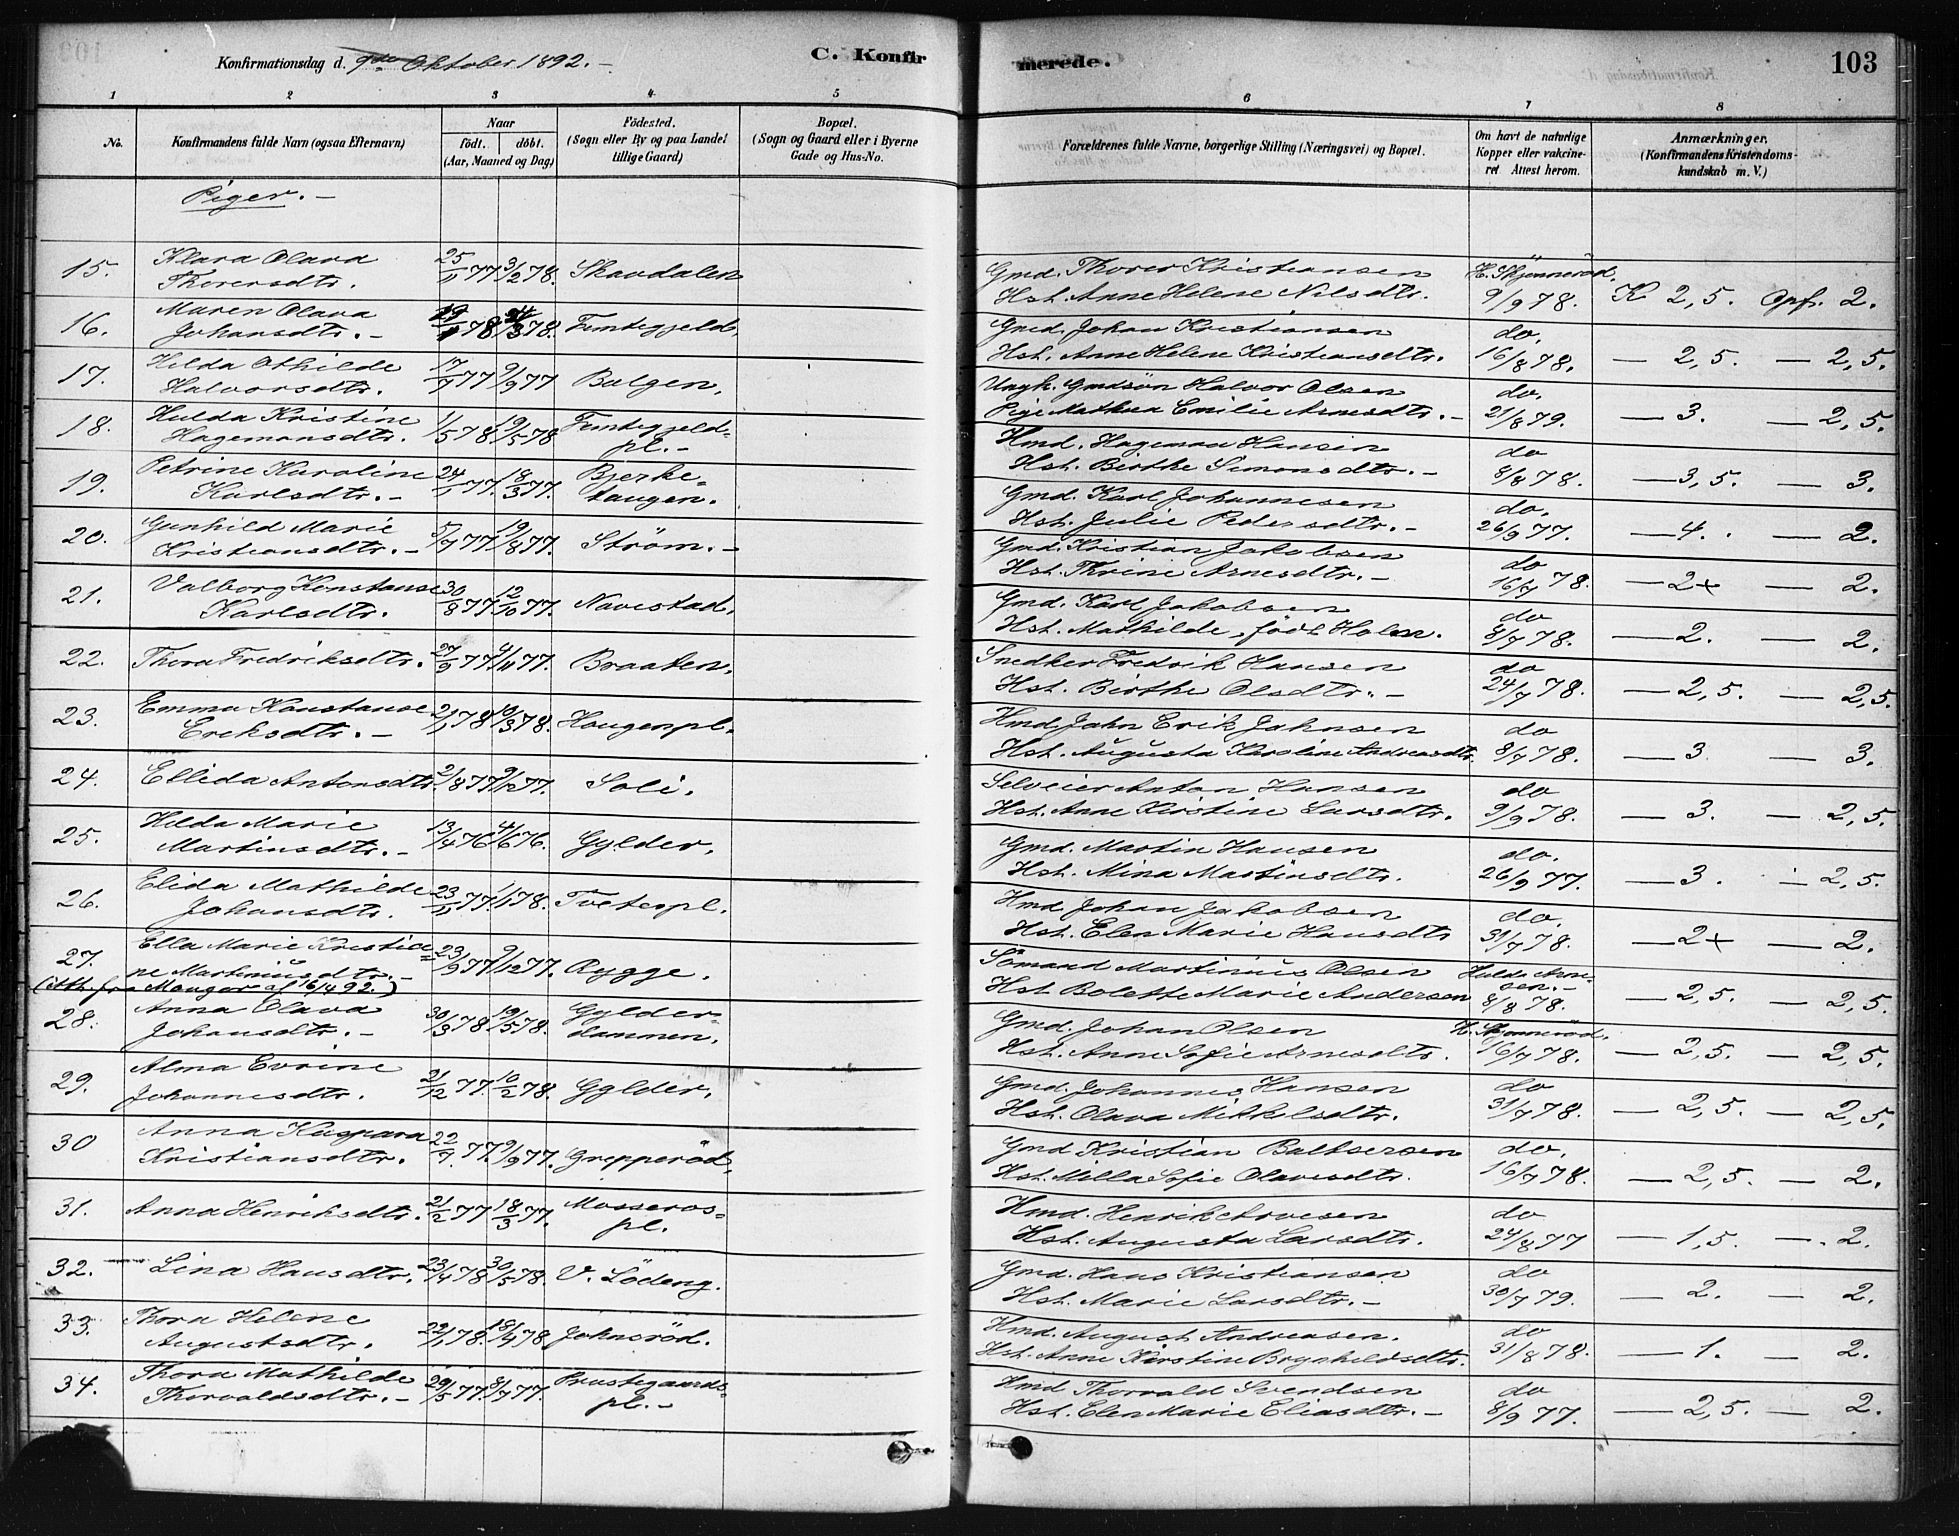 Konfirmationsdag d. 9de Oktober 1892. –
C. Konfir
merede.
103
1 2 3 4 5 6 7 8
No.
Konfirmandens fulde Navn (ogsaa Efternavn)
Naar
født. døbt.
(Aar, Maaned og Dag)
Fødested.
(Sogn eller By og paa Landet
tillige Gaard)
Bopæl.
(Sogn og Gaard eller i Byerne
Gade og Hus-No.
Forældrenes fulde Navne, borgerlige Stilling (Næringsvei) og Bopæl.
Om havt de naturlige
Kopper eller vakcine-
ret Attest herom.
Anmærkninger,
(Konfirmandens Kristendoms-
kundskab m. V.)
Piger. –
15. Klara Olava
Thorersdtr. 25/11 77 3/2 78. Skavdalen
Gmd. Thorer Kristiansen H. Skjønnerød.
Hst. Anne Helene Nilsdtr. 9/9 78. K 2,5. Opf. 2.
16. Maren Olava
Johansdtr. – 78 /3 78. Femtegjeld,
Gmd. Johan Kristiansen do.
Hst. Anne Helene Kristiansdtr. 16/8 78. — 2,5. — 2,5.
17. Hilda Othilde
Halvorsdtr. 17/7 77 9/9 77 Bolgen,
Ungk. Gmdsøn Halvor Olsen do.
Pige Mathea Emilie Arnesdtr. – 21/8 79. — 3. — 2,5.
18. Hulda Kristine
Hagemansdtr. 1/5 78. 19/5 78 Femtegjeld-
pl. –
Hmd. Hageman Hansen do
Hst. Birthe Simonsdtr. – 8/8 78. — 3,5. — 3.
19. Petrine Karoline
Karlsdtr. – 24/1 77. 18/3 77. Bjerke-
tangen.
Gmd. Karl Johannesen do.
Hst. Julie Pedersdtr. – 26/9 77. — 4. — 2.
20. Gunhild Marie
Kristiansdtr. – 5/7 77 19/8 77. Strøm. –
Gmd. Kristian Jakobsen do
Hst. Thrine Arnesdtr. – 16/7 78. — 2+ — 2.
21. Valborg Konstanse
Karlsdtr. 30/8 77 12/10 77. Navestad.
Gmd. Karl Jakobsen do
Hst. Mathilde, født Holm. 8/7 78. — 2. — 2.
22. Thora Fredriksdtr. 27/9 77 4/11 77. Braaten.
Snedker Fredrik Hansen do
Hst. Birthe Olsdtr. – 24/7 78. — 2,5. — 2,5.
23. Emma Konstanse
Eriksdtr. – 2/1 78 10/3 78. Haugenpl.
Hmd. John Erik Johnsen do
Hst. Augusta Karoline Andreasdtr. 8/7 78. — 3 — 3.
24. Ellida Antonsdtr. 2/8 77 9/12 77. Soli.
Selveier Anton Hansen do
Hst. Anne Kirstine Larsdtr. 9/9 78. — 3. — 2,5.
25. Hilda Marie
Martinsdtr. – 13/4 76 4/6 76. Gylder,
Gmd. Martin Hansen do.
Hst. Mina Martinsdtr. 26/9 77. — 3. — 2,5.
26. Elida Mathilde
Johansdtr. 23/11 77. 1/1 78. Tveterpl.
Hmd. Johan Jakobsen do.
Hst. Elen Marie Hansdtr 31/7 78. — 2+ — 2.
27. Ella Marie Kristia-
ne Martiniusdtr. – 23/9 77 9/12 77. Rygge.
(Att. fra Mangor af 16/4 92.)
Sømand Martinius Olsen Hulda Arne-
sen. –
Hst Bolette Marie Andersen 8/8 78. — 2,5. — 2,5.
28. Anna Olava
Johansdtr. – 30/3 78 19/5 78. Gylder-
dammen.
Gmd. Johan Olsen H. Skjønnerød.
Hst. Anne Sofie Arnesdtr. 16/7 78. — 2,5. — 2,5.
29. Alma Evrine
Johannesdtr. 21/12 77. 10/2 78. Gylder.
Gmd. Johannes Hansen do
Hst. Olava Mikkelsdtr. 31/7 78. — 2,5. — 2,5.
30 Anna Kaspara
Kristiansdtr. 22/7. 77. 9/9 77. Grepperød,
Gmd Kristian Baltsersen do.
Hst. Milla Sofie Olavesdtr. 16/7 78. — 2,5. — 2.
31. Anna Henriksdtr. 21/2 77 18/3 77. Mosseros-
pl.
Hmd. Henrik Arvesen do
Hst. Augusta Larsdtr. 24/8 77 — 1,5. — 2.
32. Lina Hansdtr. 23/4 78 30/5 78. V. Lødeng.
Gmd. Hans Kristiansen do
Hst. Marie Larsdtr. – 30/7 79. — 2. — 2.
33. Thora Helene
Augustsdtr. 22/1 78. 18/4 78. Johnsrød.
Hmd. August Andreasen. do
Hst. Anne Kirstine Brynhildsdtr. 31/8 78. — 1. — 2.
34. Thora Mathilde
Thorvaldsdtr. – 29/5 77. 8/7 77. Prestegaards-
pl. –
Hmd Thorvald Svendsen do
Hst. Elen Marie Eliasdtr. – 8/9 77. — 2,5. — 2.